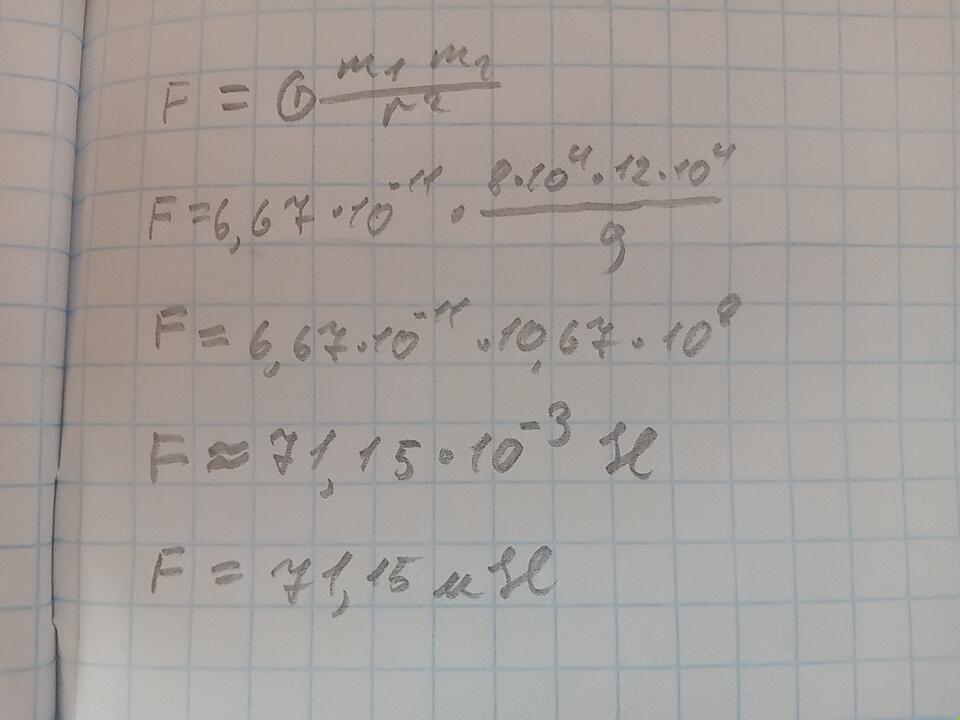 F = G m₁ m₂ / r²
F = 6,67 · 10⁻¹¹ · 8·10⁴ · 12·10⁴ / 9
F = 6,67 · 10⁻¹¹ · 10,67 · 10⁸
F ≈ 71,15 · 10⁻³ Н
F = 71,15 мН